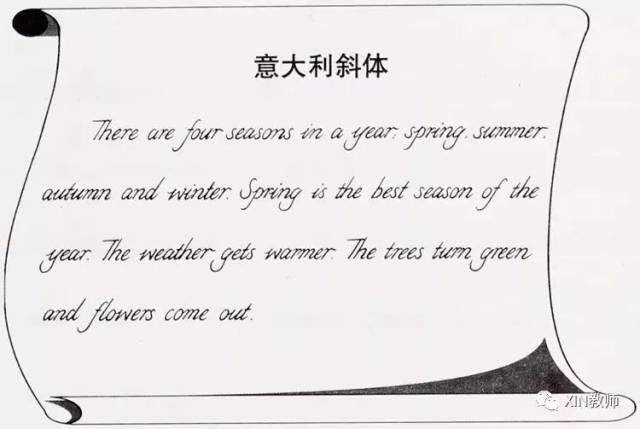 意大利斜体
There are four seasons in a year: spring, summer,
autumn and winter. Spring is the best season of the
year. The weather gets warmer. The trees turn green
and flowers come out.
XIN教师